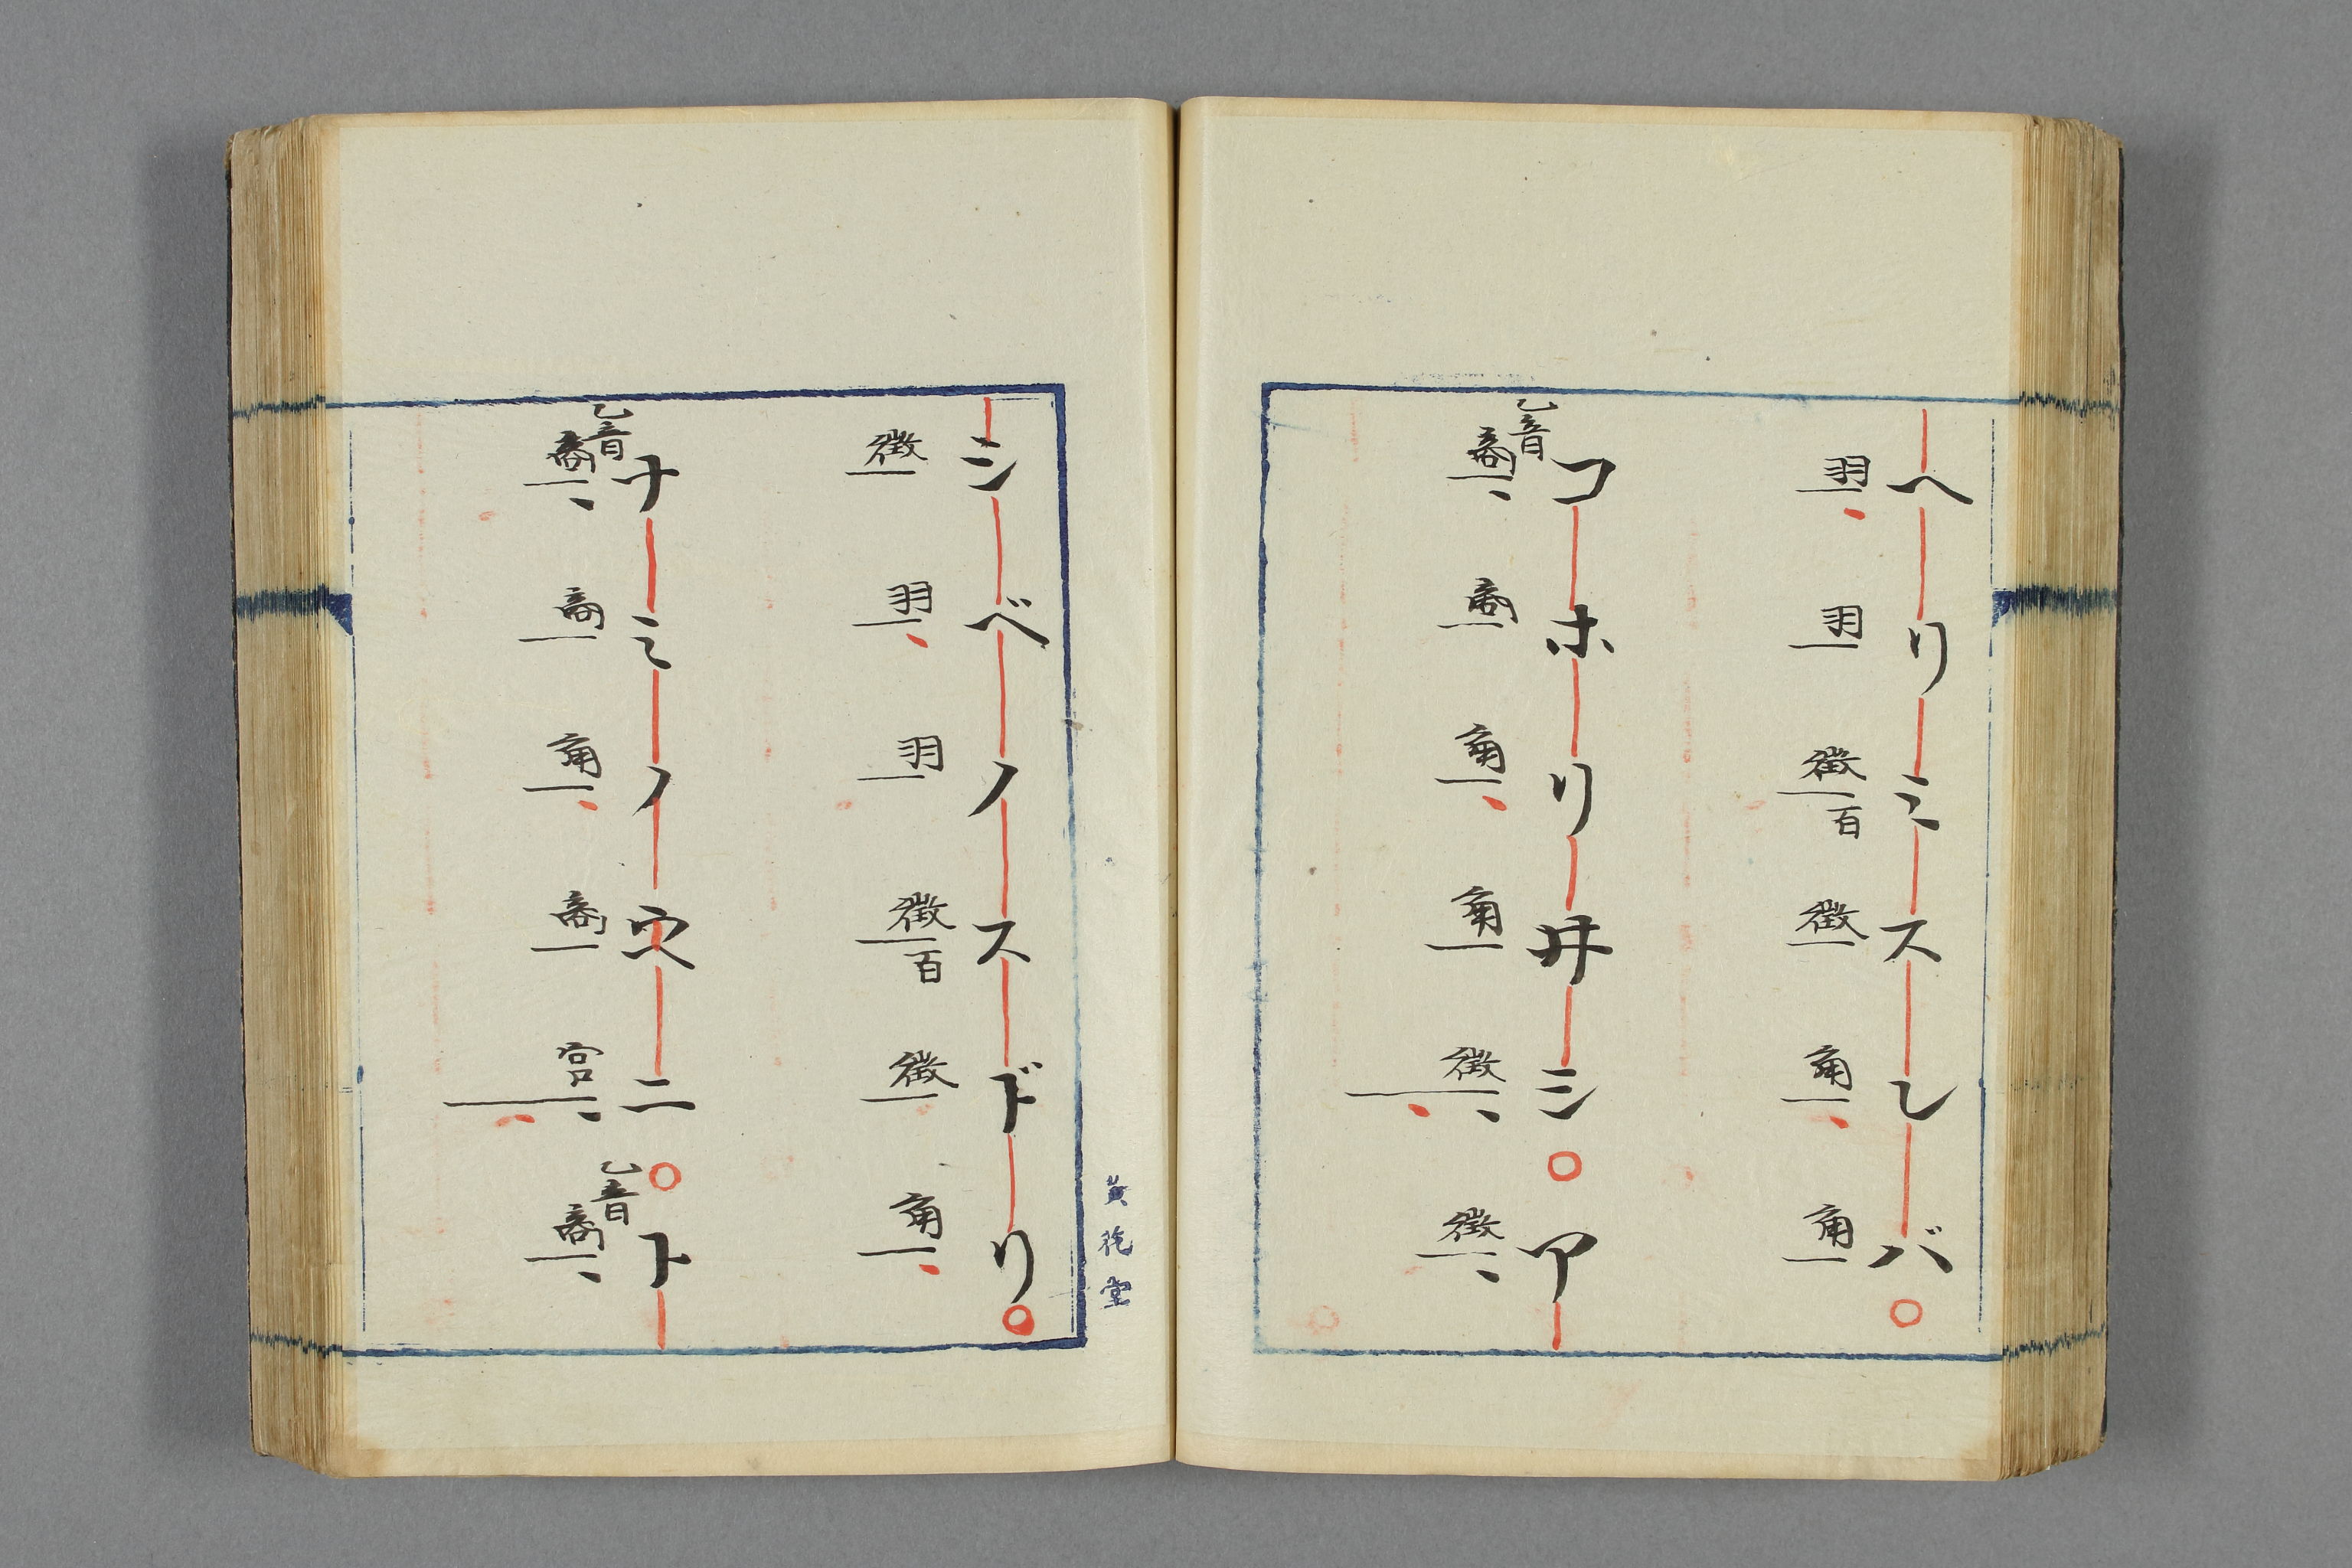 ヘリミスレバ○
羽羽徴百徴角角
コホリ井シ○ア
乙音
商商角角徴徴
シベノスドリ○
徴羽羽徴百徴角
ナミノウヘニ○ト
乙音 乙音
商商角商宮商
堂